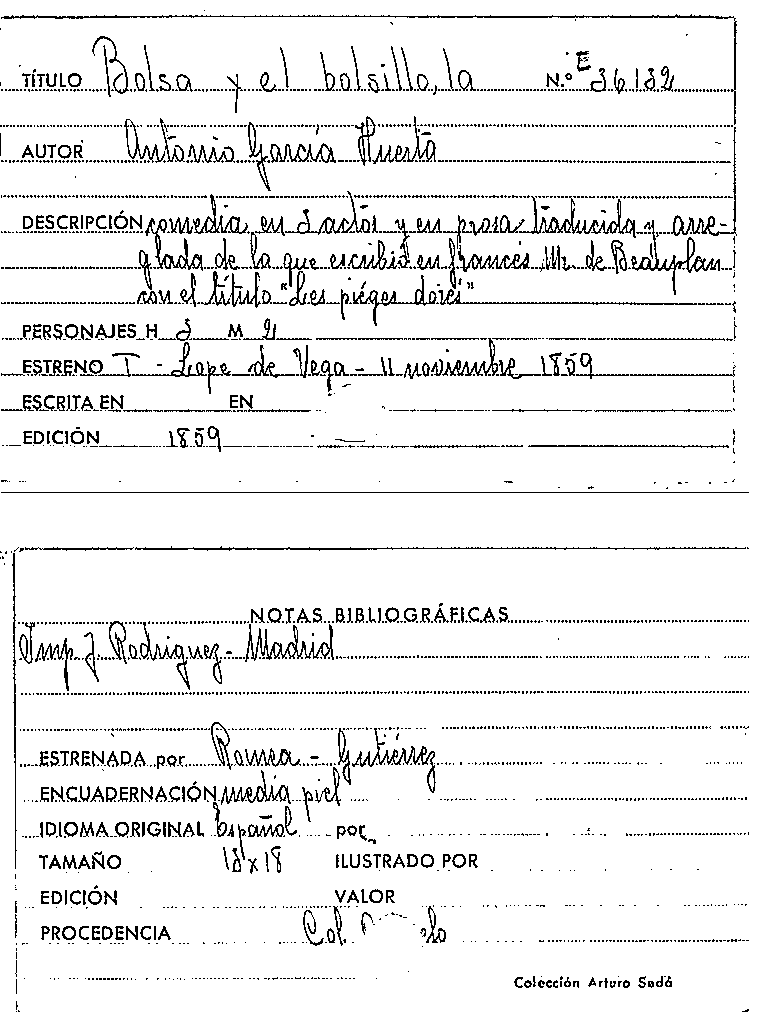 TÍTULO Bolsa y el bolsillo, la N.º E 36132
AUTOR Antonio García Huerta
DESCRIPCIÓN comedia en 3 actos y en prosa traducida y arre-
glada de la que escribió en francés Mr. de Beauplan
con el título "Les piéges dorés"
PERSONAJES H 3 M 2
ESTRENO T - Lope de Vega - 11 noviembre 1859
ESCRITA EN EN
EDICIÓN 1859
NOTAS BIBLIOGRÁFICAS
Imp. J. Rodriguez - Madrid
ESTRENADA por Romea - Gutiérrez
ENCUADERNACIÓN media piel
IDIOMA ORIGINAL Español por
TAMAÑO 13 x 18 ILUSTRADO POR
EDICIÓN VALOR
PROCEDENCIA Col.
Colección Arturo Sedó